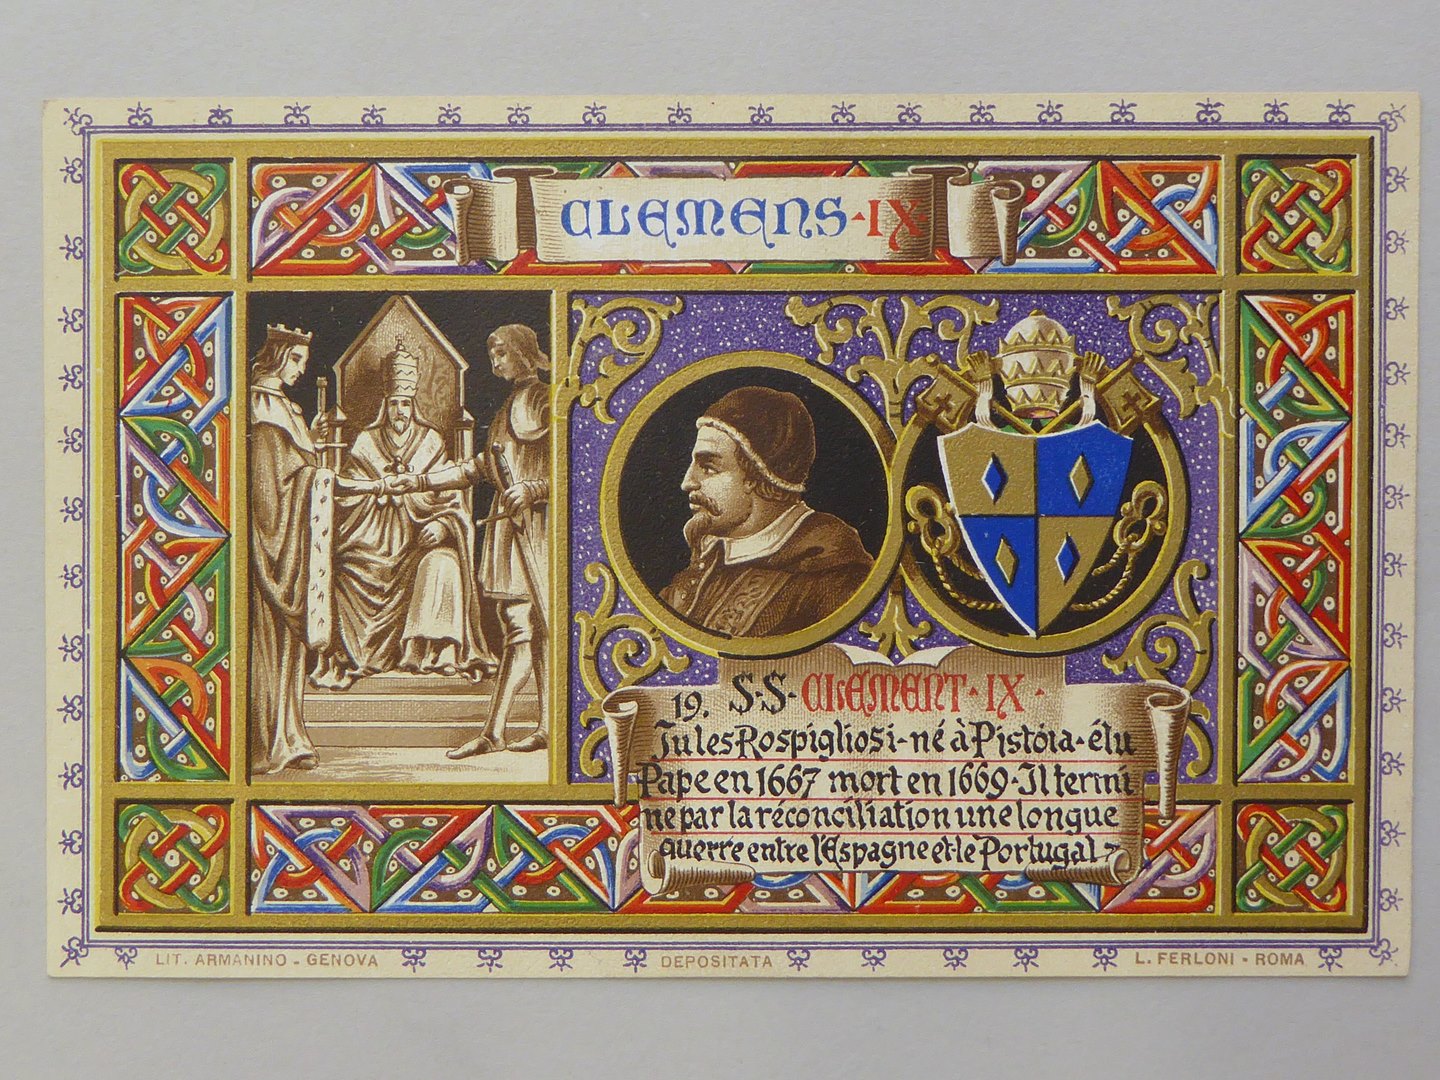 CLEMENS·IX·
19. S·S·CLEMENT·IX·
Jules Rospigliosi-né à Pistóia-élu
Pape en 1667 mort en 1669-Il termi
ne par la réconciliation une longue
guerre entre l'Espagne et le Portugal
LIT. ARMANINO - GENOVA
DEPOSITATA
L. FERLONI - ROMA